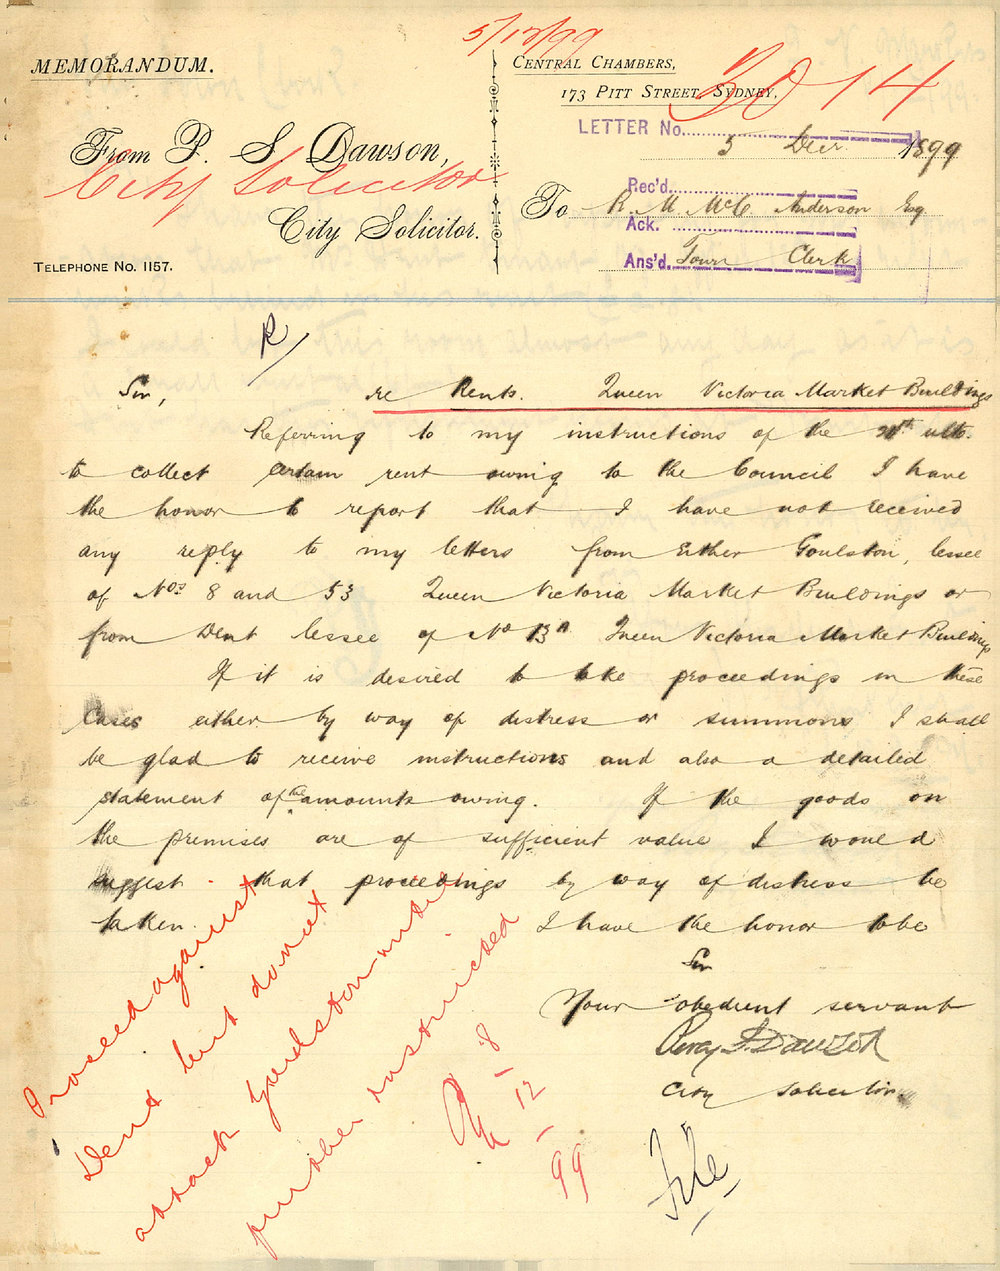 5/12/99
MEMORANDUM.
CENTRAL CHAMBERS,
173 PITT STREET, SYDNEY,
3014
LETTER No.
5 Decr. 1899
From P. S Dawson,
City Solicitor
City Solicitor.
TELEPHONE No. 1157.
Rec'd.
To R. M. McC. Anderson Esq
Ack.
Ans'd. Town Clerk
R/
Sir, re Rents. Queen Victoria Market Buildings
Referring to my instructions of the ulto.
to collect certain rent owing to the Council I have
the honor to report that I have not received
any reply to my letters from Either Goulston, lessee
of Nos 8 and 53 Queen Victoria Market Buildings or
from Dent lessee of No 13A Queen Victoria Market Buildings
If it is desired to take proceedings in these
cases either by way of distress or summons I shall
be glad to receive instructions and also a detailed
statement of the amounts owing. If the goods on
the premises are of sufficient value I would
suggest that proceedings by way of distress be
taken. I have the honor to be
Sir
Your obedient servant
Percy S. Dawson
City Solicitor
Proceed against
Dent but do not
attack Goulston until
further instructed
8
12
99
File